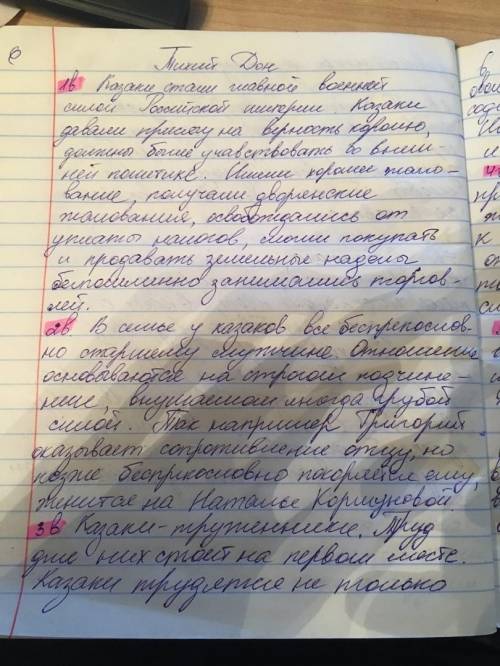 Тихий Дон
1в. Казаки стали главной военной
силой Российской империи Казаки
давали присягу на верность королю,
должны были учавствовать во внеш-
ней политике. Имели хорошее жало-
вание, получали дворянские
жалования, освобождались от
уплаты налогов, могли покупать
и продавать земельные наделы
беспошленно занимались торгов-
лей.
2в. В семье у казаков все беспрекослов-
но старшему мужчине. Отношения
основываются на строгом подчине-
нии, внушаемом иногда грубой
силой. Так например Григорий
оказывает сопротивление отцу, но
позже беспрекословно покоряется ему,
женится на Наталье Коршуновой.
3в Казаки-труженники. Труд
для них стоит на первом месте.
Казаки трудятся не только